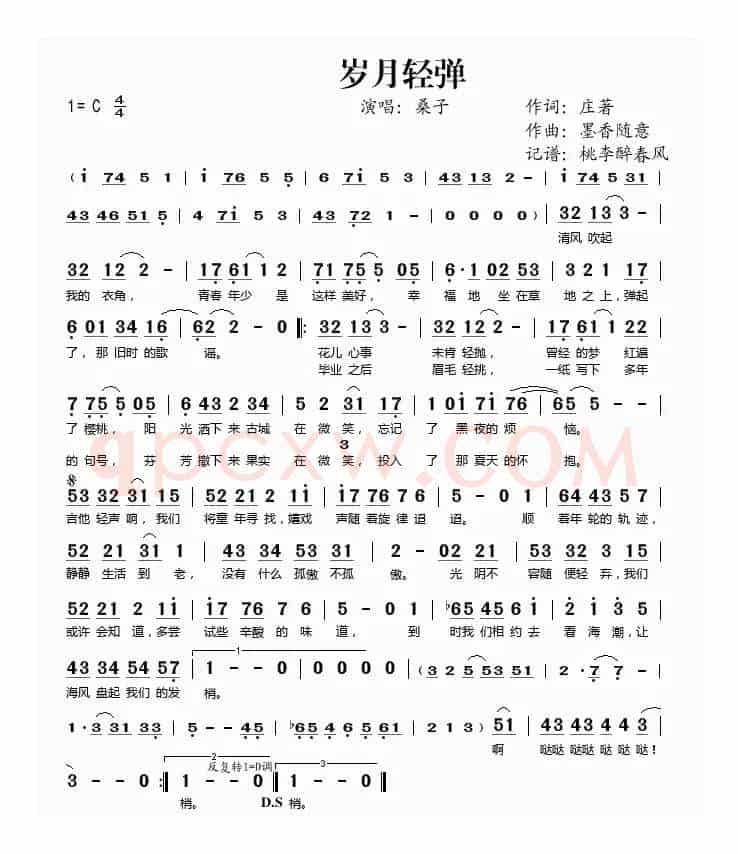 岁月轻弹
1=C 4/4 演唱：桑子 作词：庄著
作曲：墨香随意
记谱：桃李醉春风
(i 74 5 1 | 76 5 5 | 6 7i 5 3 | 43 13 2 - | i 74 5 31 |
43 46 51 5 | 4 7i 5 3 | 43 72 1 - | 0 0 0 0 ) | 32 13 3 - |
清风 吹起
32 12 2 - | 17 61 1 2 | 71 75 5 05 | 6· 1 02 53 | 3 2 1 17 |
我的 衣角， 青春 年少 是 这样 美好， 幸 福 地 坐 在草 地 之 上，弹起
6 01 34 16 | 62 2 - 0 |: 32 13 3 - | 32 13 3 - | 17 61 1 22 |
了，那 旧时 的歌 谣。 花儿 心事 未肯 轻抛， 曾经 的梦 红遍
毕业 之后 眉毛 轻挑， 一纸 写下 多年
7 75 5 05 | 6 43 2 34 | 5 2 31 17 | 1 0i 7i 76 | 65 5 - 0 |
了 樱桃， 阳 光 洒下 来 古城 在 微 笑，忘记 了 黑 夜的 烦 恼。
3
的 句号，芬 芳 撒下 来 果实 在 微 笑，投入 了 那 夏天 的怀 抱。
qpcxw.COM
53 32 31 15 | 52 21 2 1i | 17 76 76 7 | 5 - 0 1 | 64 43 57 5 |
言他 轻声 响，我们 将童 年寻 找，嬉戏 声随 着旋 律 迢 迢。 顺 着年 轮的 轨 迹，
52 21 31 1 | 43 34 53 31 | 2 - 02 21 | 53 32 3 15 |
静静 生活 到 老， 没有 什么 孤傲 不孤 傲。 光 阴不 容随 便轻 弃，我们
52 21 2 1i | 17 76 7 6 | 5 - 0 1 | b65 45 6 i | 2i 3 5 |
或许 会知 道，多尝 试些 辛酸 的 味 道， 到 时我 们 相约 去 看 海 潮，让
1
43 34 54 57 | 1 - 0 | 0 0 0 0 | (32 5 53 51 | 2· 7 7 |
海风 盘起 我们 的发 梢。
1· 3 31 33 | 5 - - 45 | b65 4 6 5 61 | 2 1 3 ) 51 | 43 43 4 4 3 |
啊 哒哒 哒哒 哒 哒 哒！
2 反复转1=D调 3
3 - - 0 :| 1 - - 0 :| 1 - - 0 ||
梢。 D.S 梢。